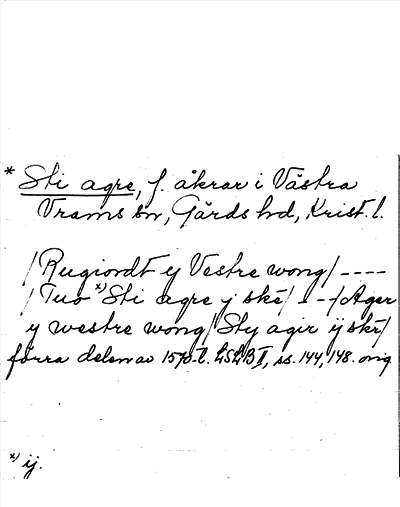 * Sti agre, f. åkrar i Västra
Vrams sn, Gärds hd, Krist. l.
/Rugiordt y Vestre wong/ ----
/Tuo x) Sti agre y ské/ - - /Ager
y westre wong/ Sty agir ÿ skr/
förra delen av 1570-t. LSLB II, ss. 144, 148. orig
x) ij.